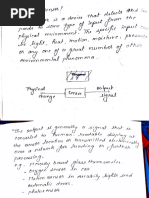 is a device that detects
ponds to some type of input from the
physical environment. The specific input
be light, heat, motion, moisture, pressure
or any one of a great number of other
environmental phenomena.
Physical
change
Sensor
Output
signal
The output is generally a signal that is
converted to human-readable display at
the sensor location or transmitted electronically
over a network for reading or further
processing.
eg :- mercury based glass thermometer
oxygen sensor in car
motion sensor in security lights and
automatic doors
photosensor